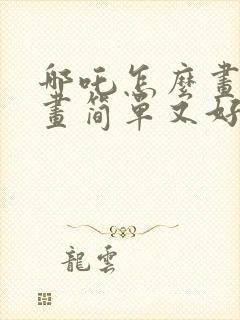 哪吒怎麼畫
畫簡單又好
龍雲